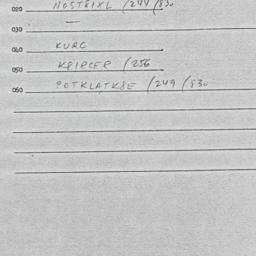 020 NOSTRIXL /244 /830
030 —
040 KURC
050 K8IPCEP /256
060 POTKLATK8E /249 /830